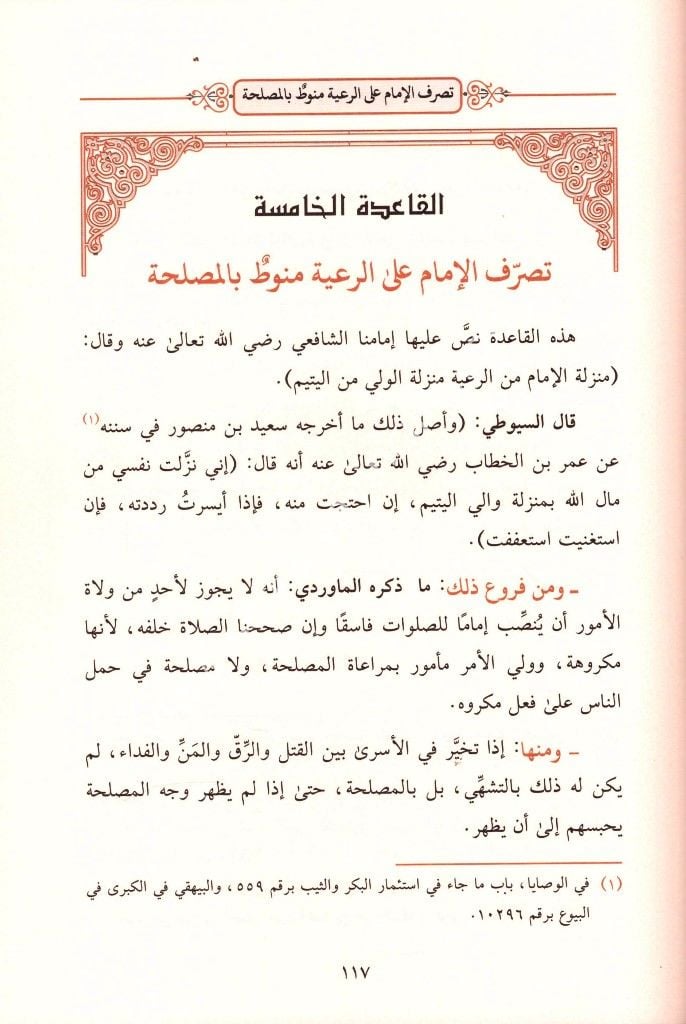 تصرف الإمام على الرعية منوطٌ بالمصلحة
القاعدة الخامسة
تصرّف الإمام علىٰ الرعية منوطٌ بالمصلحة
هذه القاعدة نصَّ عليها إمامنا الشافعي رضي الله تعالىٰ عنه وقال:
(منزلة الإمام من الرعية منزلة الولي من اليتيم).
قال السيوطي: (وأصل ذلك ما أخرجه سعيد بن منصور في سننه(١)
عن عمر بن الخطاب رضي الله تعالىٰ عنه أنه قال: (إني نزَّلت نفسي من
مال الله بمنزلة والي اليتيم، إن احتجت منه، فإذا أيسرتُ رددته، فإن
استغنيت استعففت).
ـ ومن فروع ذلك: ما ذكره الماوردي: أنه لا يجوز لأحدٍ من ولاة
الأمور أن يُنصِّب إمامًا للصلوات فاسقًا وإن صححنا الصلاة خلفه، لأنها
مكروهة، وولي الأمر مأمور بمراعاة المصلحة، ولا مصلحة في حمل
الناس علىٰ فعل مكروه.
ـ ومنها: إذا تخيَّر في الأسرىٰ بين القتل والرِّقّ والمَنِّ والفداء، لم
يكن له ذلك بالتشهِّي، بل بالمصلحة، حتىٰ إذا لم يظهر وجه المصلحة
يحبسهم إلىٰ أن يظهر.
(١) في الوصايا، باب ما جاء في استئمار البكر والثيب برقم ٥٥٩، والبيهقي في الكبرى في
البيوع برقم ١٠٢٩٦.
١١٧